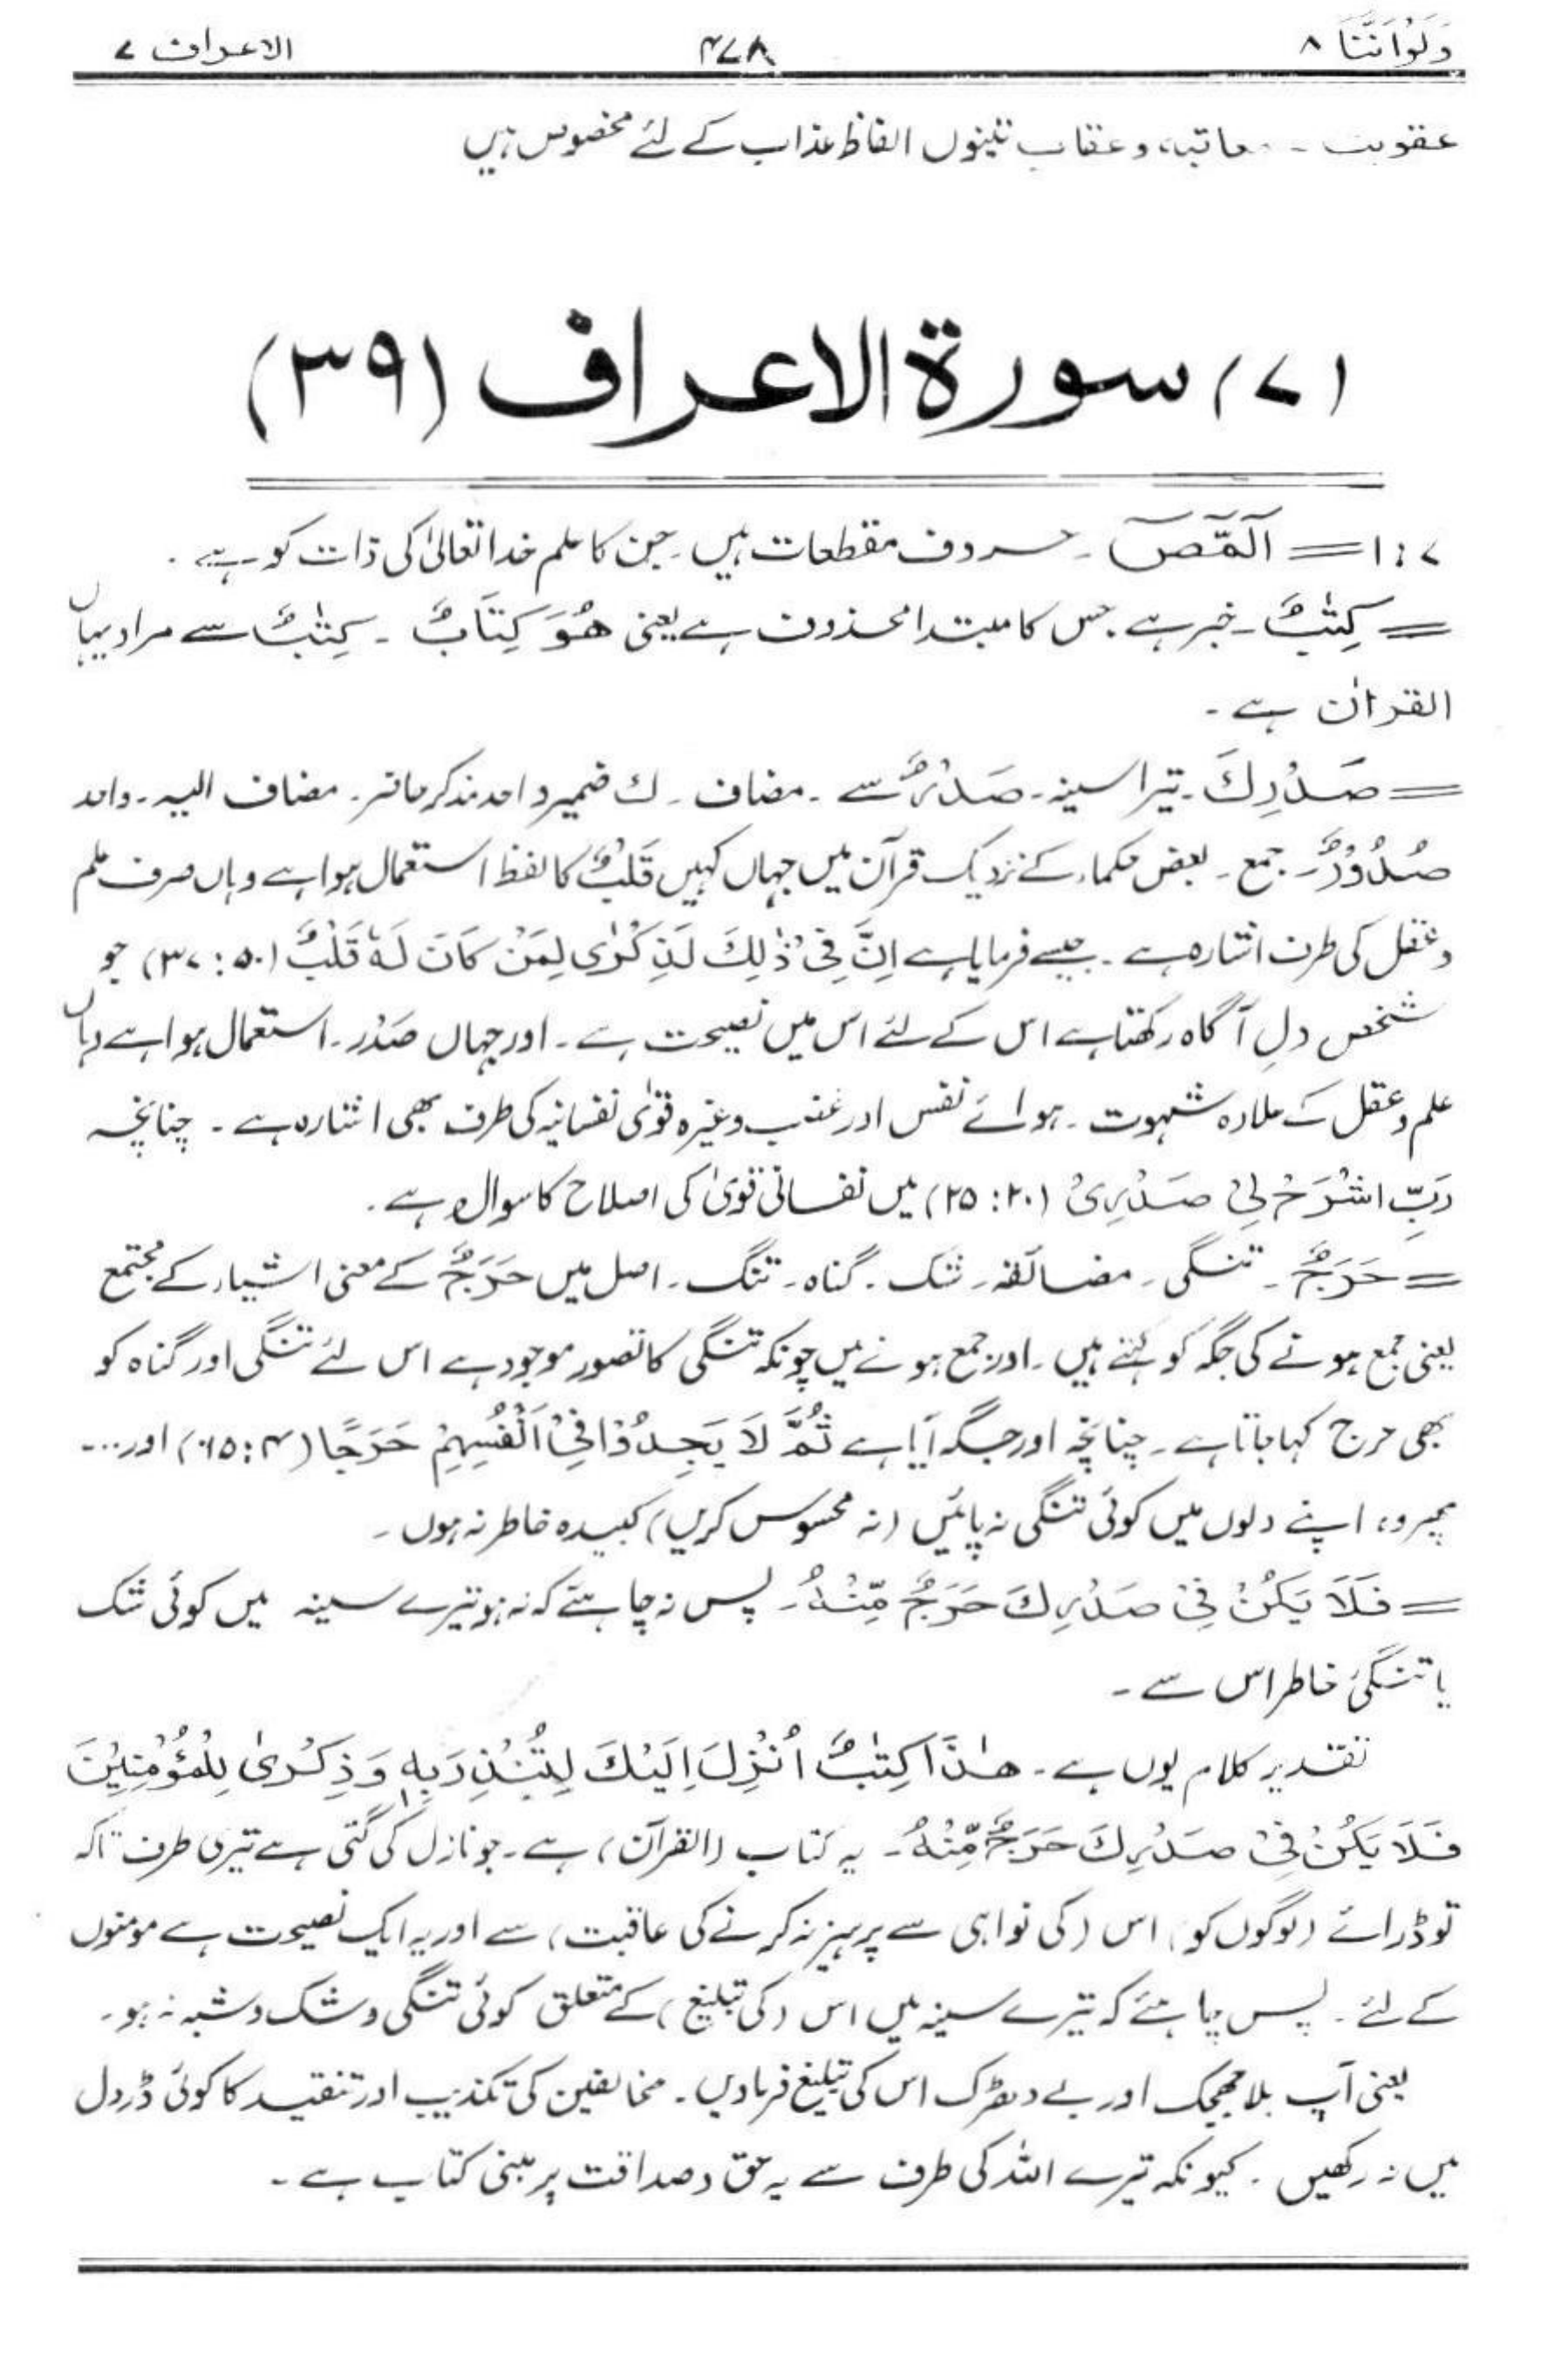 وَلَوْاَنَّنَا ۸ ۴۷۸ الاعراف ۷
عقوبت ۔ معاتبہ، وعقاب تینوں الفاظ عذاب کے لئے مخصوص ہیں
(۷) سورة الاعراف (۳۹)
۷:۱ = آلٓمّٓصٓ ۔ حروف مقطعات ہیں۔ جن کا علم خدا تعالیٰ کی ذات کو ہے ۔
= کِتٰبٌ ۔ خبر ہے۔ جس کا مبتدا محذوف ہے یعنی ھُوَ کِتَابٌ ۔ کِتٰبٌ سے مراد یہاں
القرآن ہے ۔
= صَدْرِكَ ۔ تیرا سینہ ۔ صَدْرٌ سے ۔ مضاف ۔ ك ضمیر واحد مذکر حاضر ۔ مضاف الیہ ۔ واحد
صُدُوْرٌ ۔ جمع ۔ بعض حکماء کے نزدیک قرآن میں جہاں کہیں قَلْبٌ کا لفظ استعمال ہوا ہے وہاں صرف علم
وعقل کی طرف اشارہ ہے ۔ جیسے فرمایا ہے اِنَّ فِیْ ذٰلِكَ لَذِکْرٰی لِمَنْ کَانَ لَہٗ قَلْبٌ (۵۰:۳۷) جو
شخص دلِ آگاہ رکھتا ہے اس کے لئے اس میں نصیحت ہے ۔ اور جہاں صَدْر ۔ استعمال ہوا ہے وہاں
علم وعقل کے علاوہ شہوت ۔ ہوائے نفس اور غضب وغیرہ قوٰی نفسانیہ کی طرف بھی اشارہ ہے ۔ چنانچہ
رَبِّ اشْرَحْ لِیْ صَدْرِیْ (۲۰:۲۵) میں نفسانی قویٰ کی اصلاح کا سوال ہے ۔
= حَرَجٌ ۔ تنگی ۔ مضائقہ ۔ شک ۔ گناہ ۔ تنگ ۔ اصل میں حَرَجٌ کے معنی اشیاء کے مجتمع
یعنی جمع ہونے کی جگہ کو کہتے ہیں ۔ اور جمع ہونے میں چونکہ تنگی کا تصور موجود ہے اس لئے تنگی اور گناہ کو
بھی حرج کہا جاتا ہے ۔ چنانچہ اور جگہ آیا ہے ثُمَّ لَا یَجِدُوْا فِیْ اَنْفُسِہِمْ حَرَجًا (۴:۶۵) اور ....
پھر وہ اپنے دلوں میں کوئی تنگی نہ پائیں (نہ محسوس کریں) کبیدہ خاطر نہ ہوں ۔
= فَلَا یَکُنْ فِیْ صَدْرِكَ حَرَجٌ مِّنْہُ ۔ پس نہ چاہئے کہ نہ ہو تیرے سینہ میں کوئی شک
یا تنگیٔ خاطر اس سے ۔
تقدیر کلام یوں ہے ۔ ھٰذَا کِتٰبٌ اُنْزِلَ اِلَیْكَ لِتُنْذِرَ بِہٖ وَذِکْرٰی لِلْمُؤْمِنِیْنَ
فَلَا یَکُنْ فِیْ صَدْرِكَ حَرَجٌ مِّنْہُ ۔ یہ کتاب (القرآن) ہے ۔ جو نازل کی گئی ہے تیری طرف تاکہ
تو ڈرائے (لوگوں کو) اس (کی نواہی سے پرہیز نہ کرنے کی عاقبت) سے اور یہ ایک نصیحت ہے مومنوں
کے لئے ۔ پس چاہئے کہ تیرے سینہ میں اس (کی تبلیغ) کے متعلق کوئی تنگی و شک و شبہ نہ ہو۔
یعنی آپ بلا جھجک اور بے دھڑک اس کی تبلیغ فرمادیں ۔ مخالفین کی تکذیب اور تنقید کا کوئی ڈر دل
میں نہ رکھیں ۔ کیونکہ تیرے اللہ کی طرف سے یہ حق و صداقت پر مبنی کتاب ہے ۔